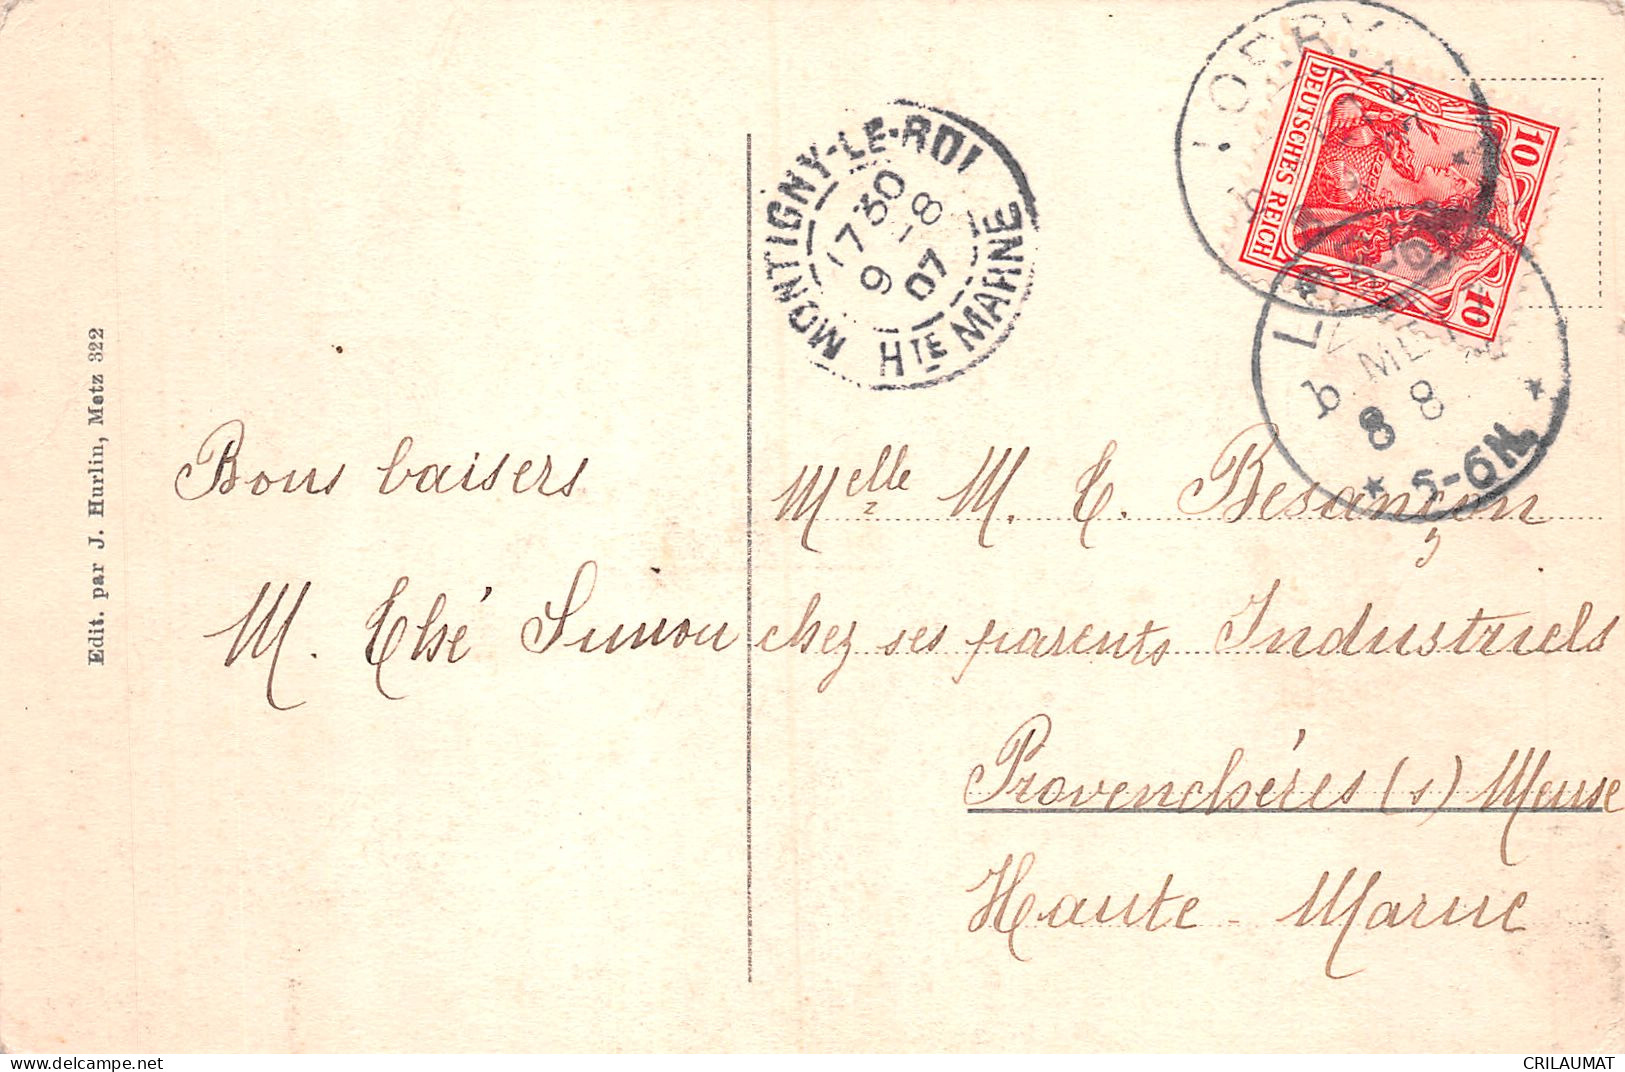 Edit. par J. Hurlin, Metz 322
Bons baisers
M. Thsé Simon
MONTIGNY-LE-ROI
17 30
9 - 8
07
HTE MARNE
DEUTSCHES REICH
10
10
LORRY
b. METZ
8 8
5-6N.
Melle M. T. Besançon
chez ses parents Industriels
Provenchéres (s) Meuse
Haute - Marne
www.delcampe.net
CRILAUMAT